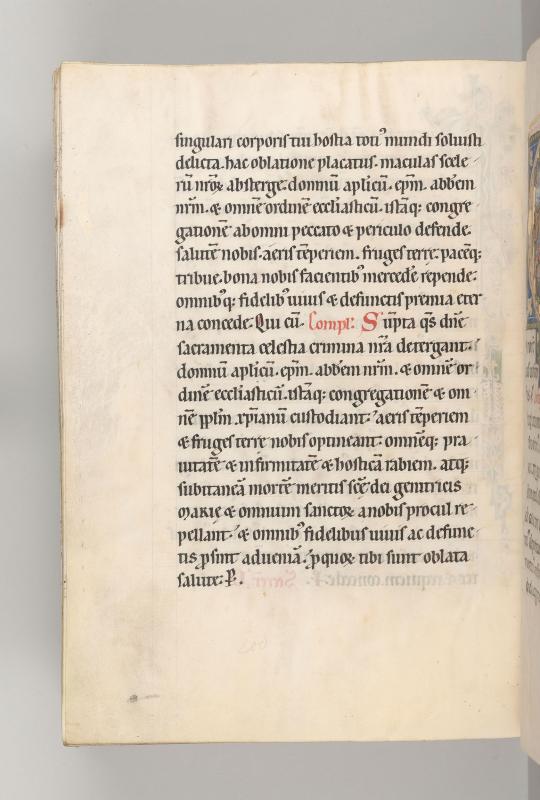 singulari corporis tui hostia toti᾽ mundi soluisti
delicta. hac oblatione placatus. maculas scele-
rū nr̄oꝝ absterge: domnū aplicū. ep̄m. abbēm
nr̄m. & omnē ordinē eccl̄iasticū. istāq: congre
gationē ab omni peccato & periculo defende.
salutē nobis. aeris tēperiem. fruges terre. pacēq:
tribue. bona nobis facientib᾽ mercedē repende:
omnib᾽q: fidelib᾽ uiuis & defunctis premia eter
na concede: Qui cū. Compl: Sūpta qs̄ dn̄e
sacramenta celestia crimina nr̄a detergant:
domnū aplicū. ep̄m. abbēm nr̄m. & omnē or
dinē eccl̄iasticū. istāq: congregationē & om
nē pplm̄ xp̄ianū custodiant: aeris tēperiem
& fruges terre nobis optineant: omnēq: pra
uitatē & infirmitatē & hosticā rabiem. atq:
subitaneā mortē meritis scē dei genitricis
MARIE & omnium sanctoꝝ a nobis procul re-
pellant: & omnib᾽ fidelibus uiuis ac defunc-
tis ꝓsint ad ueniā. ꝓ quoꝝ tibi sunt oblata
salute: P̄.